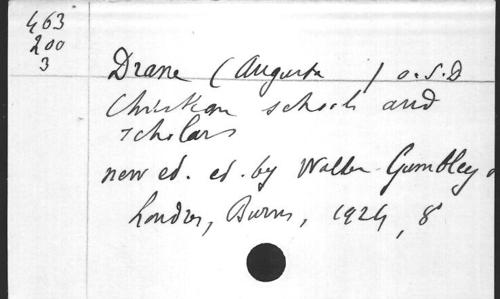 463
200
3
Drane (Augusta ) o.S.D
Christian schools and
scholars
new ed. ed. by Walter Gumbley
Londres, Burns, 1924, 8°